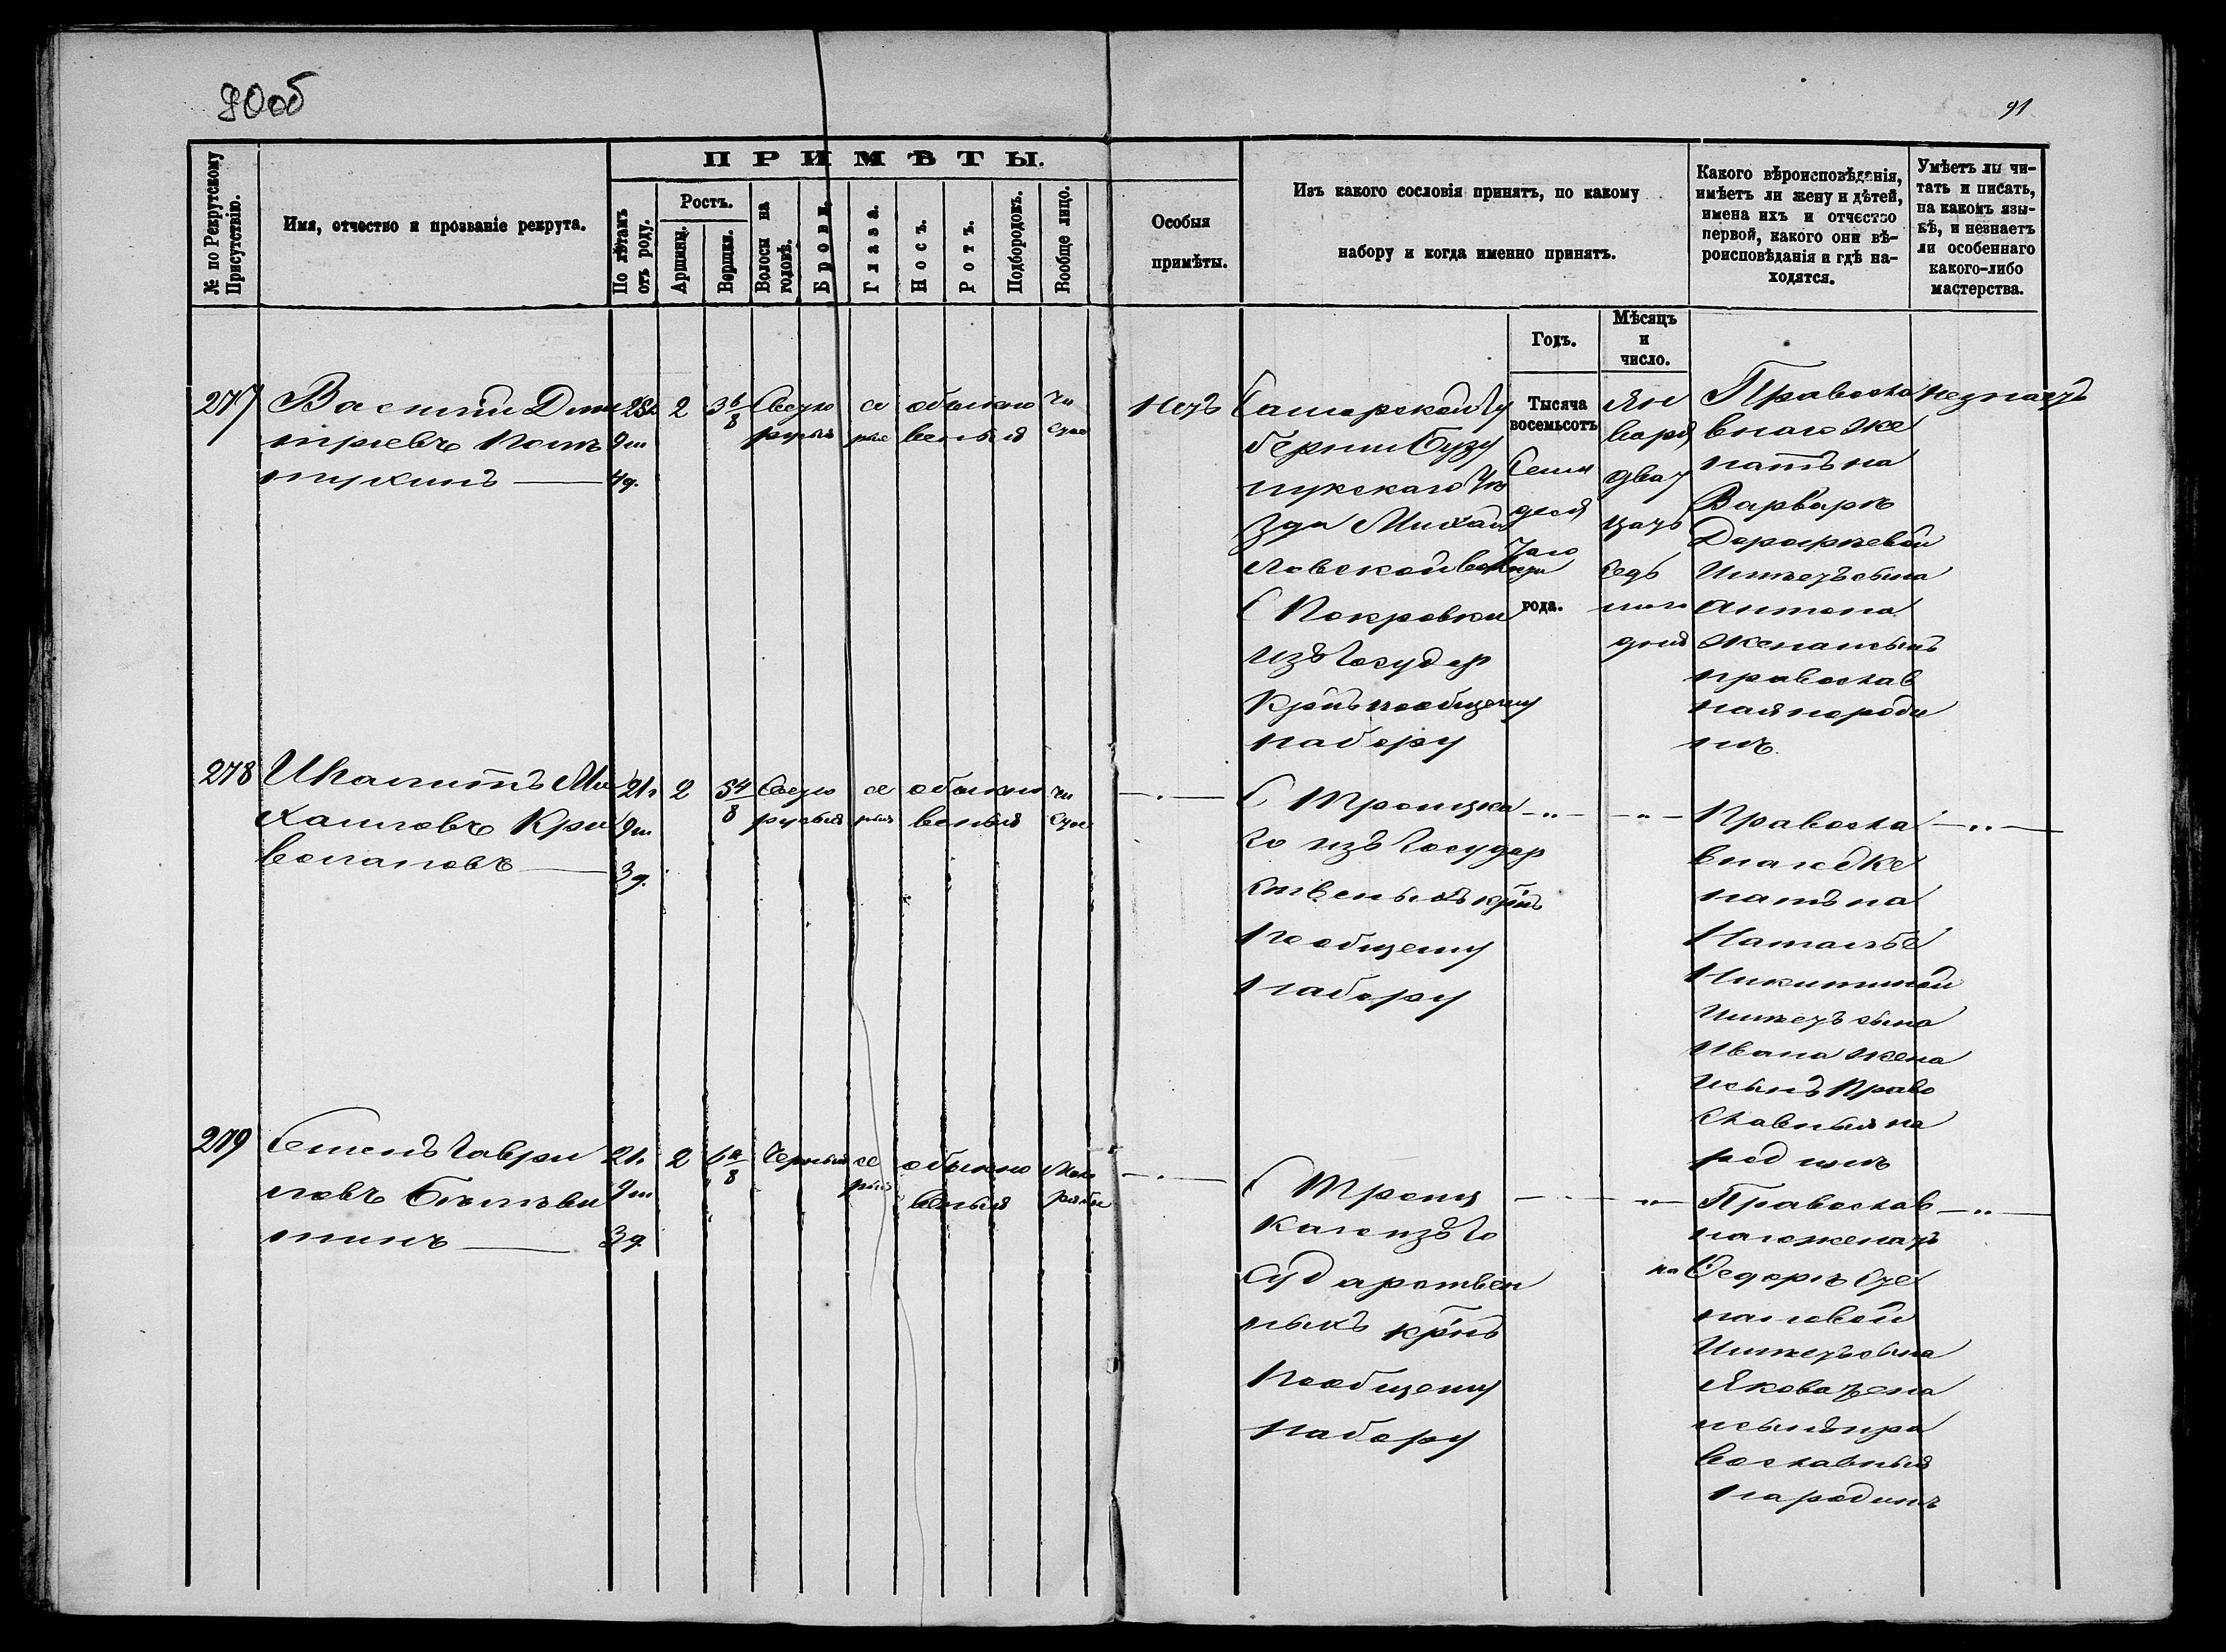 90об
91
№ по Рекрутскому
Присутствію.
Имя, отчество и прозваніе рекрута.
ПРИМѢТЫ.
По лѣтамъ
отъ роду.
Ростъ.
Аршины.
Вершки.
Волосы на
головѣ.
Брови.
Глаза.
Носъ.
Ротъ.
Подбородокъ.
Вообще лицо.
Особыя
примѣты.
Изъ какого сословія принятъ, по какому
набору и когда именно принятъ.
Какого вѣроисповѣданія,
имѣетъ ли жену и дѣтей,
имена ихъ и отчество
первой, какого они вѣ-
роисповѣданія и гдѣ на-
ходятся.
Умѣетъ ли чи-
тать и писать,
на какомъ язы-
кѣ, и незнаетъ
ли особеннаго
какого-либо
мастерства.
Годъ.
Мѣсяцъ
и
число.
277
Василій Дми
тріевъ
9м
4д.
2
3 6/8
Светло
русыя
се
рые
обыкно
веный
чи
стое
нетъ
Самарской Гу
берніи Бузу
лукскаго Уѣ
зда Михай
ловской вол
С Покровки
изъ Государ
Крнъ пообщему
набору
Тысяча
восемьсотъ
Семи
деся
таго
года.
Ян
варя
двад
цать
седь
маго
дня
Правосла
внаго Же
натъ на
Варваре
Дорофеевой
Имѣетъ сына
Антона
Жена и сынъ
православ
ная на роди
нѣ.
незнаетъ
278
Ипалитъ Ми
хаиловъ Кри
21
9м
3д.
2
3 4/8
Светло
русыя
се
рыя
обыкно
веный
чи
стое
С Троицка
го изъ Государ
ственыхъ крнъ
пообщему
набору
Правосла
внаго Же
натъ на
Наталье
Никитиной
Имѣетъ сына
Ивана жена
и сынъ Право
славныя на
родинѣ
279
Семенъ Гаври
ловъ
21
9м
3д.
2
Черныя
се
рыя
обыкно
веный
рябое
С Троиц
каго изъ Го
сударствен
ныхъ крнъ
Пообщему
набору
Православ
наго женатъ
на Федоре Сте
пановой
Имѣетъ сына
Якова жена
и сынъ пра
вославныя
на родинѣ